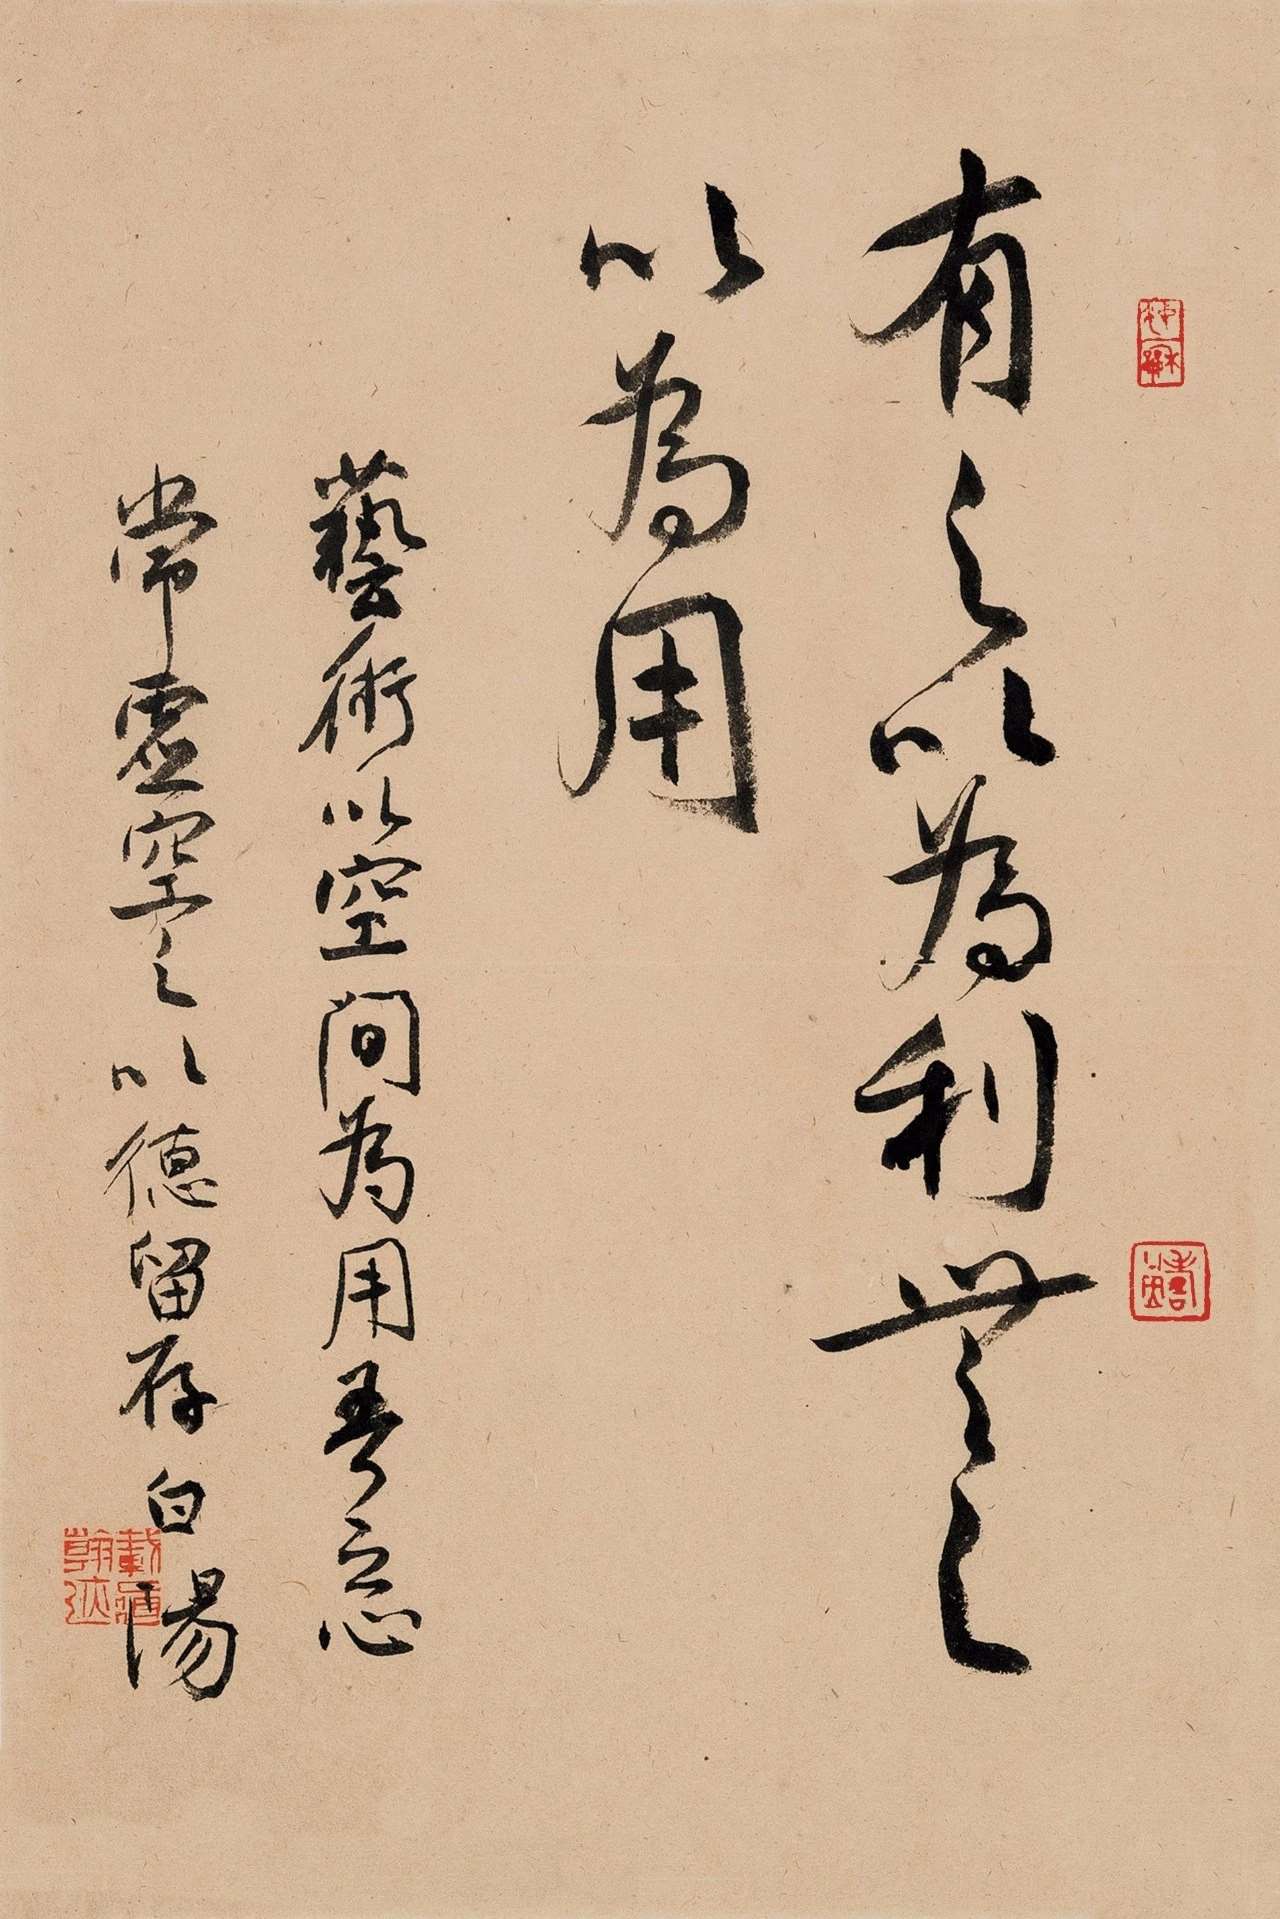 有之以為利無之
以為用
藝術以空間為用吾之心
常虛空之以德留存 白陽